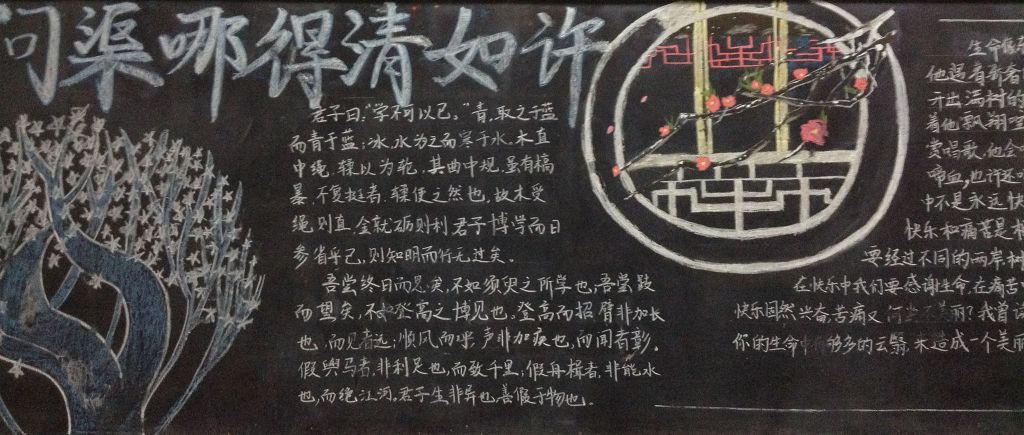 问渠哪得清如许
君子曰:“学不可以已。”青,取之于蓝
而青于蓝;冰,水为之而寒于水。木直
中绳,輮以为轮,其曲中规,虽有槁
暴,不复挺者,輮使之然也,故木受
绳则直,金就砺则利君子博学而日
参省乎己,则知明而行无过矣。
吾尝终日而思矣,不如须臾之所学也,吾尝跂
而望矣,不如登高之博见也。登高而招,臂非加长
也,而见者远;顺风而呼,声非加疾也,而闻者彰。
假舆马者,非利足也,而致千里;假舟楫者,非能水
也,而绝江河,君子生非异也,善假于物也。
生命
他遇着
开出满树的
着他飘翔
赏唱歌,他会
啼血,也许还
中不是永远快
快乐和痛苦是相
要经过不同的两岸树
在快乐中我们要感谢生命,在痛苦
快乐固然兴奋,苦痛又何尝不美丽?我曾读
你的生命中够多的云翳,来造成一个美丽